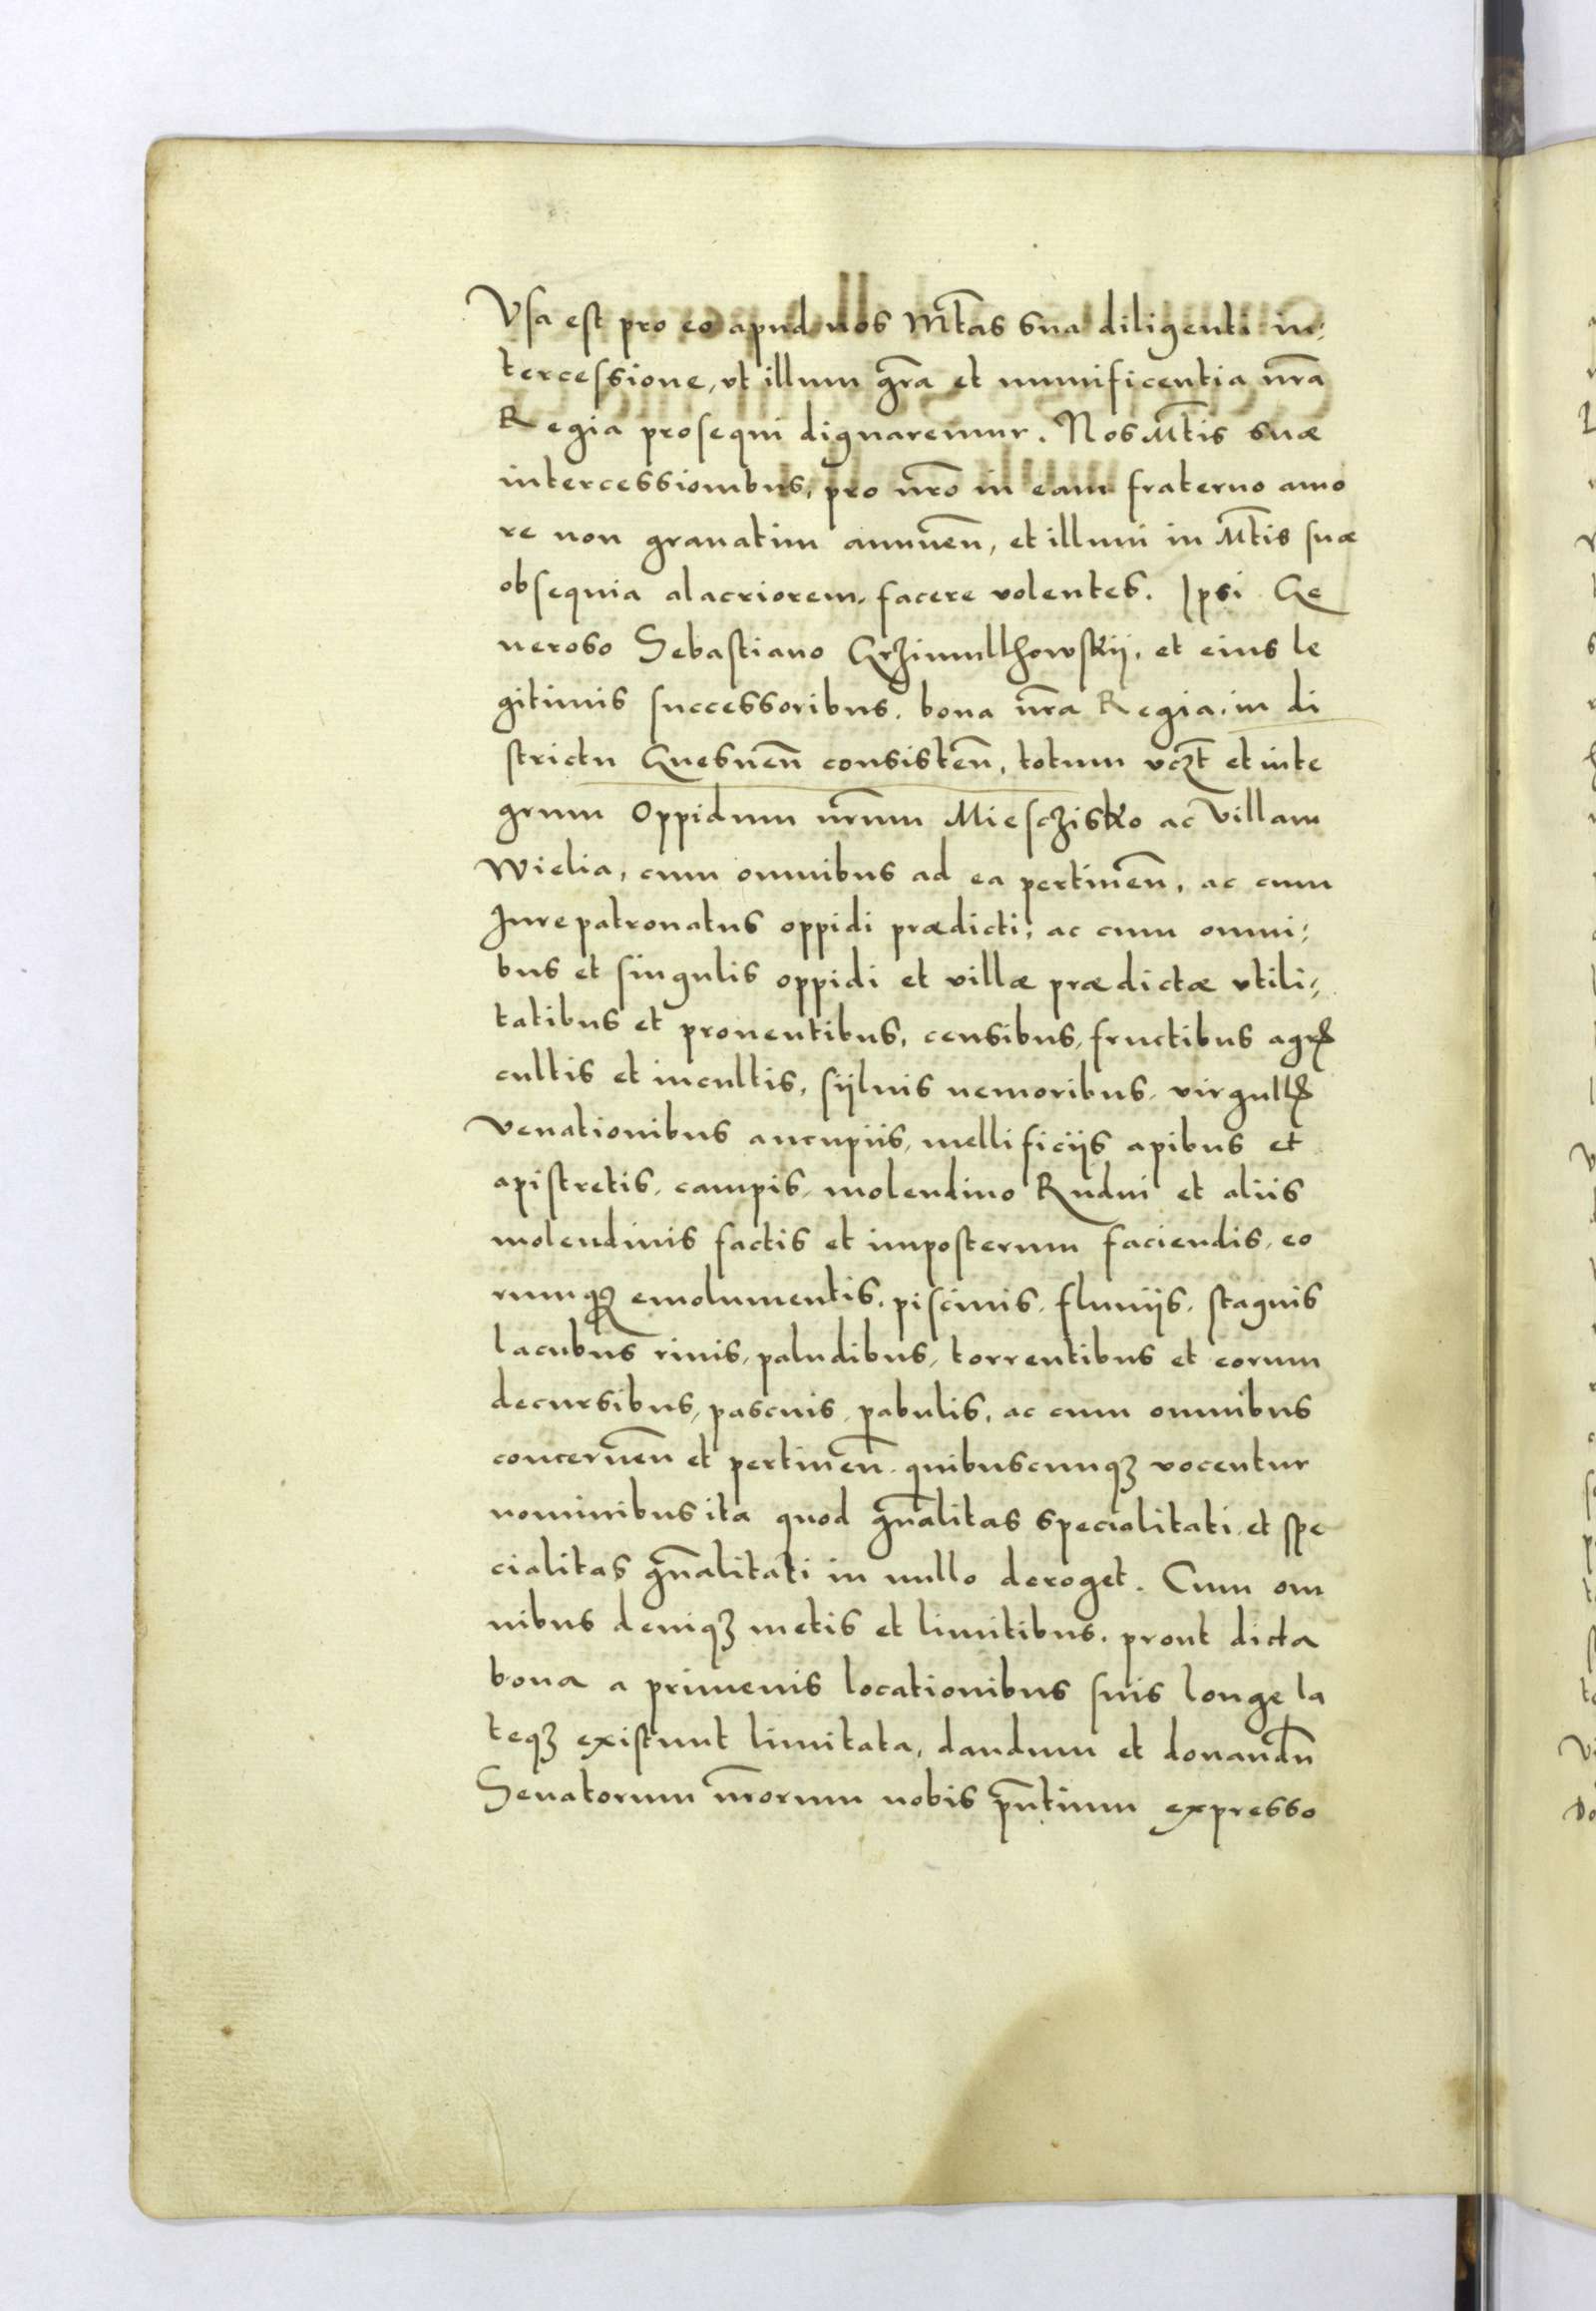 Vsa est pro eo apud nos Mt̄as sua diligenti in⸗
tercessione, vt illum gr̄a et munificentia nr̄a
Regia prosequi dignaremur. Nos Mt̄is suæ
intercessionibus, pro nr̄o in eam fraterno amo
re non grauatim annuen̄, et illum in Mt̄is suæ
obsequia alacriorem facere volentes. Ipsi Ge
neroso Sebastiano Grzimulthowskij, et eius le
gitimis successoribus, bona nr̄a Regia, in di
strictu Gnesnen̄ consisten̄, totum vcz̄t et inte
grum Oppidum nr̄um Miesczisko ac Villam
Wielia, cum omnibus ad ea pertinen̄, ac cum
Jurepatronatus oppidi prædicti, ac cum omni⸗
bus et singulis oppidi et villæ prædictæ vtili⸗
tatibus et prouentibus, censibus, fructibus agrꝭ
cultis et incultis, sijluis nemoribus, virgultꝭ
venationibus aucupiis, mellificijs apibus et
apistretis, campis, molendino Rudni et aliis
molendinis factis et imposterum faciendis, eo
rumqꝫ emolumentis, piscinis, fluuijs, stagnis
lacubus riuis, paludibus, torrentibus et eorum
decursibus, pascuis, pabulis, ac cum omnibus
concernen̄ et pertinen̄, quibuscunqꝫ vocentur
nominibus ita quod gn̄alitas specialitati et spe
cialitas gn̄alitati in nullo deroget. Cum om
nibus deniqꝫ metis et limitibus, prout dicta
bona a primeuis locationibus suis longe la
teqꝫ existunt limitata, dandum et donandū
Senatorum nr̄orum nobis pn̄tium expresso